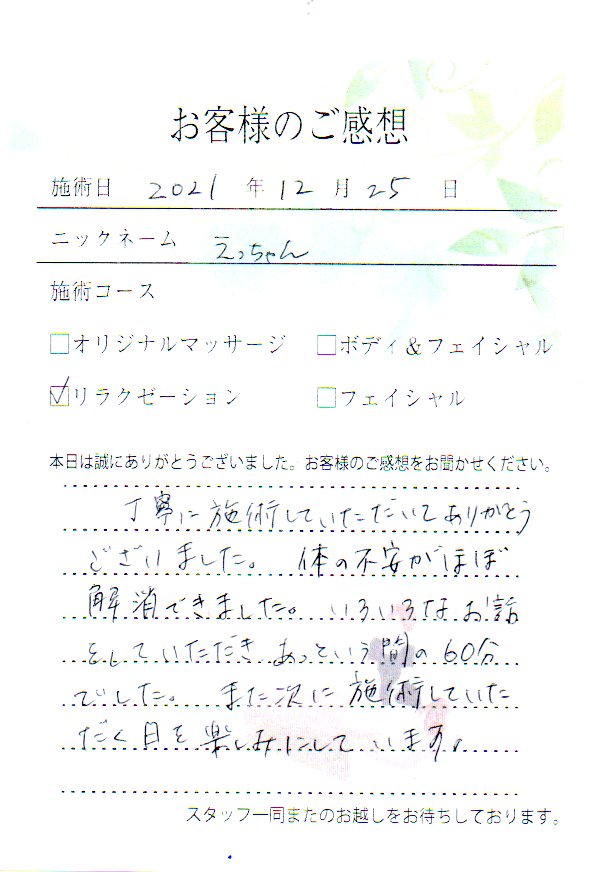 お客様のご感想
施術日 2021 年 12 月 25 日
ニックネーム えっちゃん
施術コース
□オリジナルマッサージ □ボディ＆フェイシャル
☑リラクゼーション □フェイシャル
本日は誠にありがとうございました。お客様のご感想をお聞かせください。
丁寧に施術していただいてありがとう
ございました。 体の不安がほぼ
解消できました。いろいろなお話
をしていただき あっという間の60分
でした。 また次に施術していた
だく日を楽しみにしています。
スタッフ一同またのお越しをお待ちしております。